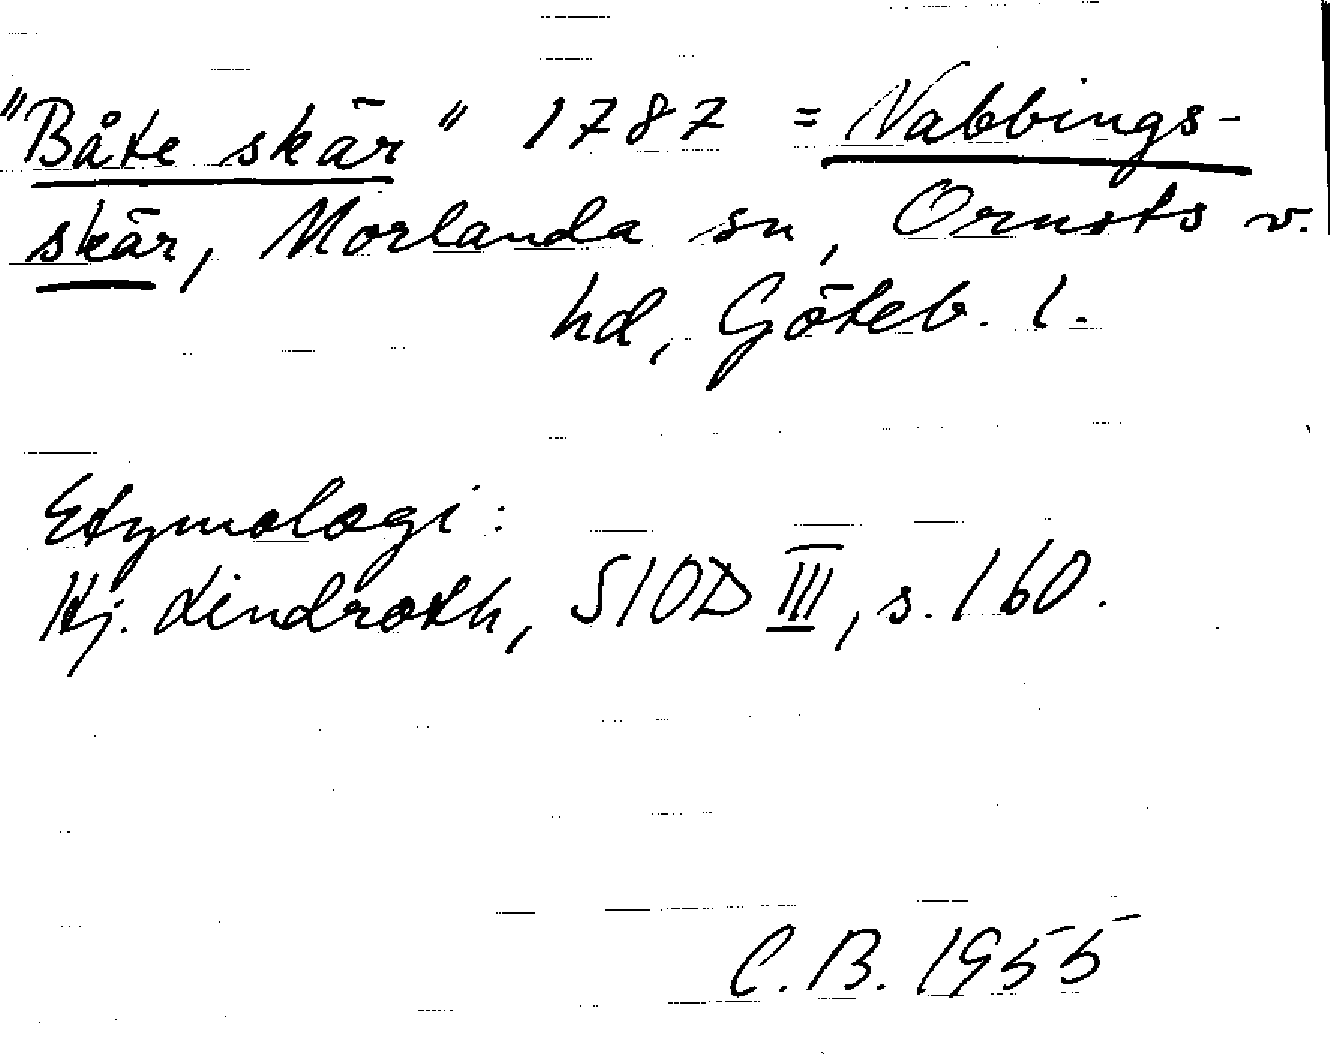 "Båte skär" 1787 = Nabbings-
skär, Morlanda sn, Orusts v.
hd, Göteb. l.
Etymologi:
Hj. Lindroth, SIOD III, s. 160.
C. B. 1955